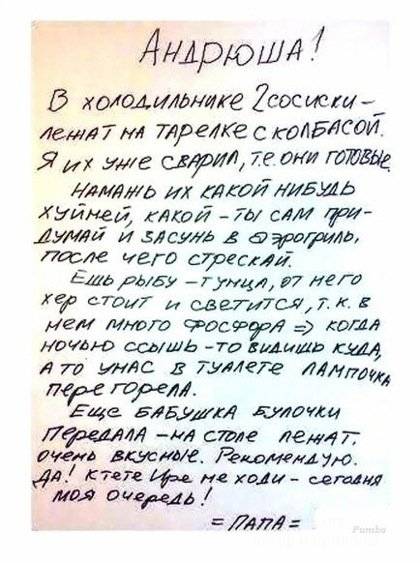 Андрюша!
В холодильнике 2 сосиски –
лежат на тарелке с колбасой.
Я их уже сварил, т.е. они готовые.
Намажь их какой нибудь
хуйней, какой – ты сам при-
думай и засунь в аэрогриль,
после чего стрескай.
Ешь рыбу – тунца, от него
хер стоит и светится, т.к. в
нем много фосфора => когда
ночью ссышь – то видишь куда,
а то у нас в туалете лампочка
перегорела.
Еще бабушка булочки
передала – на столе лежат,
очень вкусные. Рекомендую.
Да! К тете Ире не ходи – сегодня
моя очередь!
= ПАПА =
Pumba